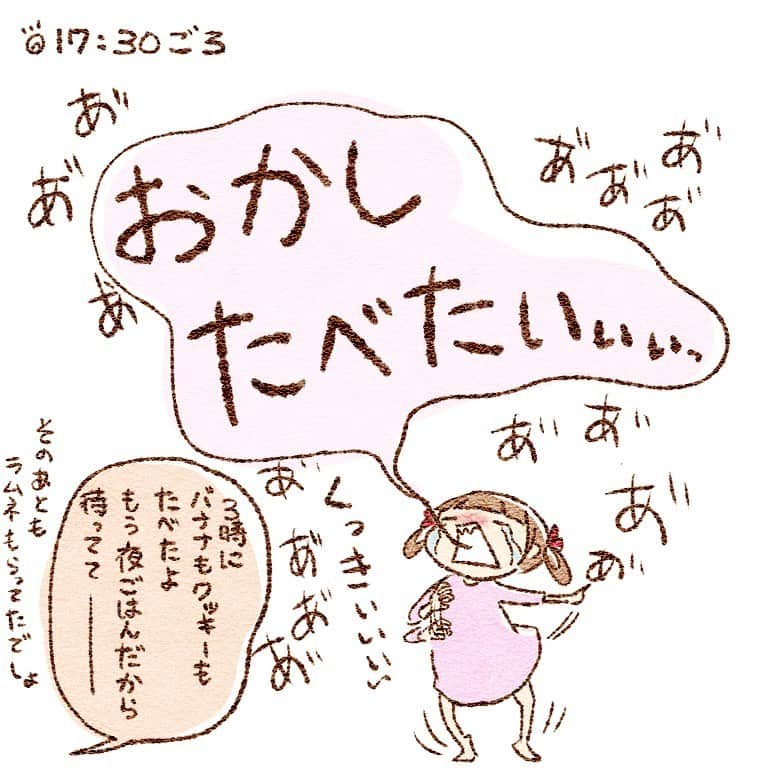 17:30ごろ
あ゛
あ゛
あ゛
おかし
たべたいぃぃぃっ
あ゛
あ゛
あ゛
あ゛
あ゛
あ゛
あ゛
あ゛
くっきぃぃぃぃ
あ゛
あ゛
あ゛
あ゛
3時に
バナナもクッキーも
たべたよ
もう夜ごはんだから
待ってて―――
そのあとも
ラムネもらってたでしょ